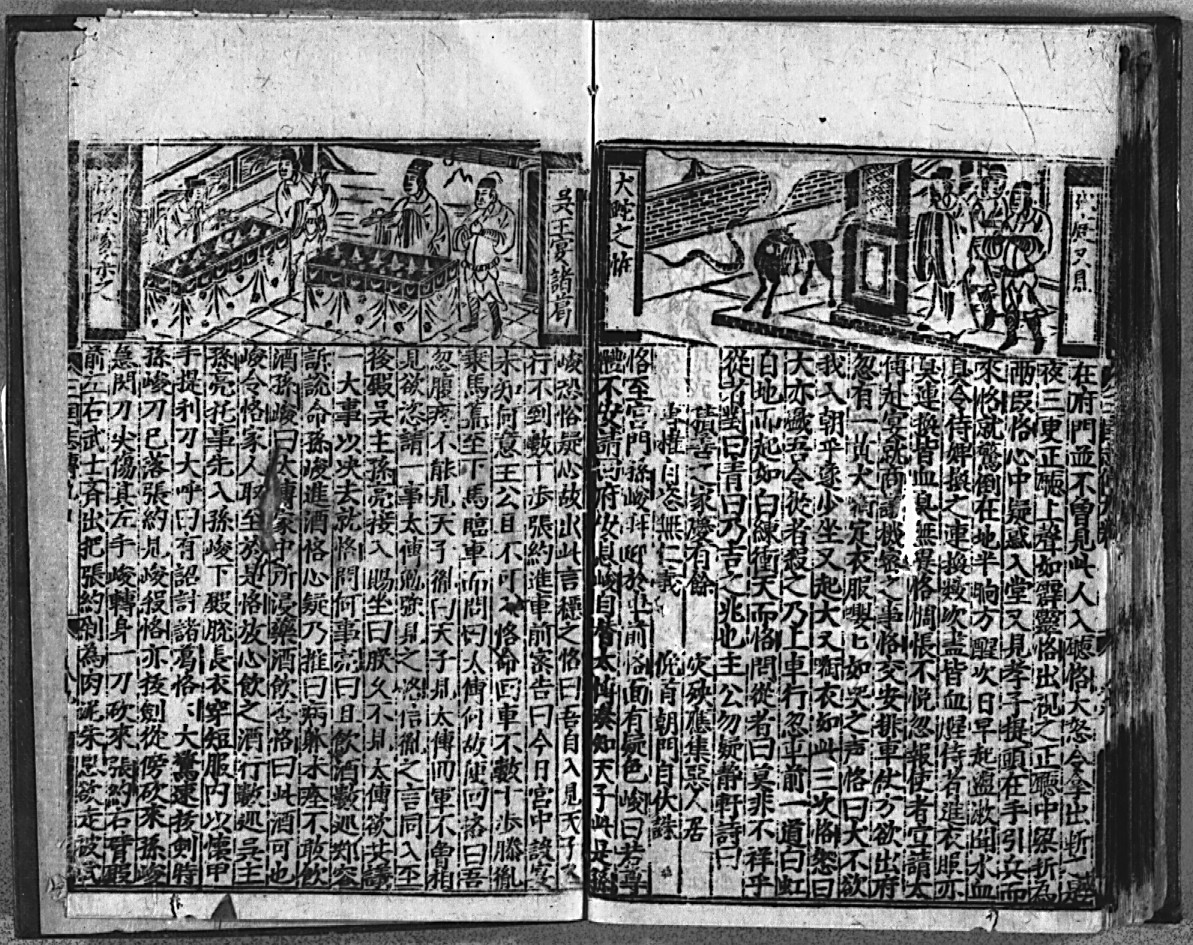 在府門並不曾見此人入廳恪大怒令拿出斬之是
夜三更正廳上聲如霹靂恪出視之正廳中梁折為
兩段恪心中疑惑入堂又見孝子提頭在手引兵而
來恪就驚倒在地半晌方醒次日早起盥漱聞水血
臭令侍婢換之連換數次盡皆血腥侍者進衣服亦
臭連換皆血臭無異恪惆悵不悅忽報使者宣請太
傅赴宴就商議機密之事恪交安排車仗方欲出府
忽有一黃犬啣定衣服嚶七如哭之声恪曰犬不欲
我入朝乎遂少坐又起犬又啣衣如此三次恪怒曰
犬亦戲吾令從者殺之乃上車行忽車前一道白虹
自地而起如白練衝天而恪問從者曰莫非不祥乎
從者對曰青白乃吉之兆也主公勿疑靜軒詩曰
積善之家慶有餘 災殃應集惡人居
當權自恣無仁義 俛首朝門自伏誅
恪至宮門孫峻拜迎於車前恪面有疑色峻曰若尊
體不安請回府安息峻自替太傅奏知天子此是孫
峻恐恪疑心故出此言穩之恪曰吾自入見天子又
行不到數十步張約進車前密告曰今日宮中設宴
未知何意主公且不可入恪命回車不數十步滕胤
乘馬驀至下馬臨車而問曰太傅何故便回恪曰吾
忽腹疼不能見天子胤曰天子見太傅回軍不曾相
見欲恣請一事太傅勉強見之恪信胤之言同入至
後殿吳主孫亮接入賜坐曰朕久不見太傅欲共議
一大事以決去就恪問何事亮曰且飲酒數巡却容
訴說命孫峻進酒恪心疑乃推曰病軀未痊不敢飲
酒孫峻曰太傅家中所浸藥酒飲否恪曰此酒可也
峻令恪家人取至於是恪放心飲之酒行數巡吳主
孫亮托事先入孫峻下殿脫長衣穿短服內以懷甲
手提利刀大呼曰有詔討諸葛恪恪大驚速拔劍時
孫峻刀已落張約見峻殺恪亦拔劍從傍砍來孫峻
急閃刀尖傷其左手峻轉身一刀砍來張約右臂殿
前左右武士齊出把張約剁為肉泥朱恩欲走被武
犬啣之怪
吳王宴諸葛